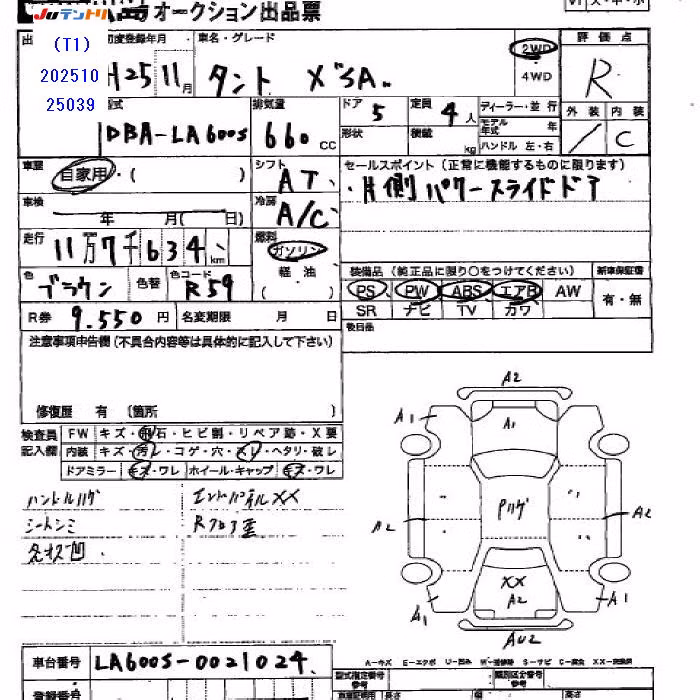 JUテントリ
オークション出品票
(T1)
202510
25039
初度登録年月 車名・グレード 2WD 4WD 評価点
H25 11月 タント X"SA R
型式 排気量 CC ドア 定員 人 ディーラー・並行 外装 内装
DBA-LA600S 660 5 4 形状 積載 kg モデル年式 年 ハンドル 左・右 / C
車歴 自家用・( ) シフト AT セールスポイント(正常に機能するものに限ります)
・片側パワースライドドア
車検 年 月( 日) 冷房 A/C
走行 11万7千634 km 燃料 ガソリン 軽油 ( )
色 ブラウン 色替 色コード R59
装備品(純正品に限り○をつけてください) 新車保証書
PS PW ABS エアB AW 有・無
SR ナビ TV カワ
R券 9.550円 名変期限 月 日 後日品
注意事項申告欄(不具合内容等は具体的に記入して下さい)
修復歴 有 (箇所 )
検査員記入欄 FW キズ・飛石・ヒビ割・リペア跡・X要
内装 キズ・汚レ・コゲ・穴・スレ・ヘタリ・破レ
ドアミラー キズ・ワレ ホイール・キャップ キズ・ワレ
ハンドルハゲ エンドパネルXX
シートシミ Rフロア歪
A2
A1 A1
Pハゲ
A2 A2
XX
A2
A1 A1
AU2
車台番号 LA600S-0021024
A-キズ E-エクボ U-凹み W-補修跡 S-サビ C-腐食 XX-交換済
登録番号 型式指定番号 参考 類別区分番号 参考
車証明用 長さ 幅 高さ